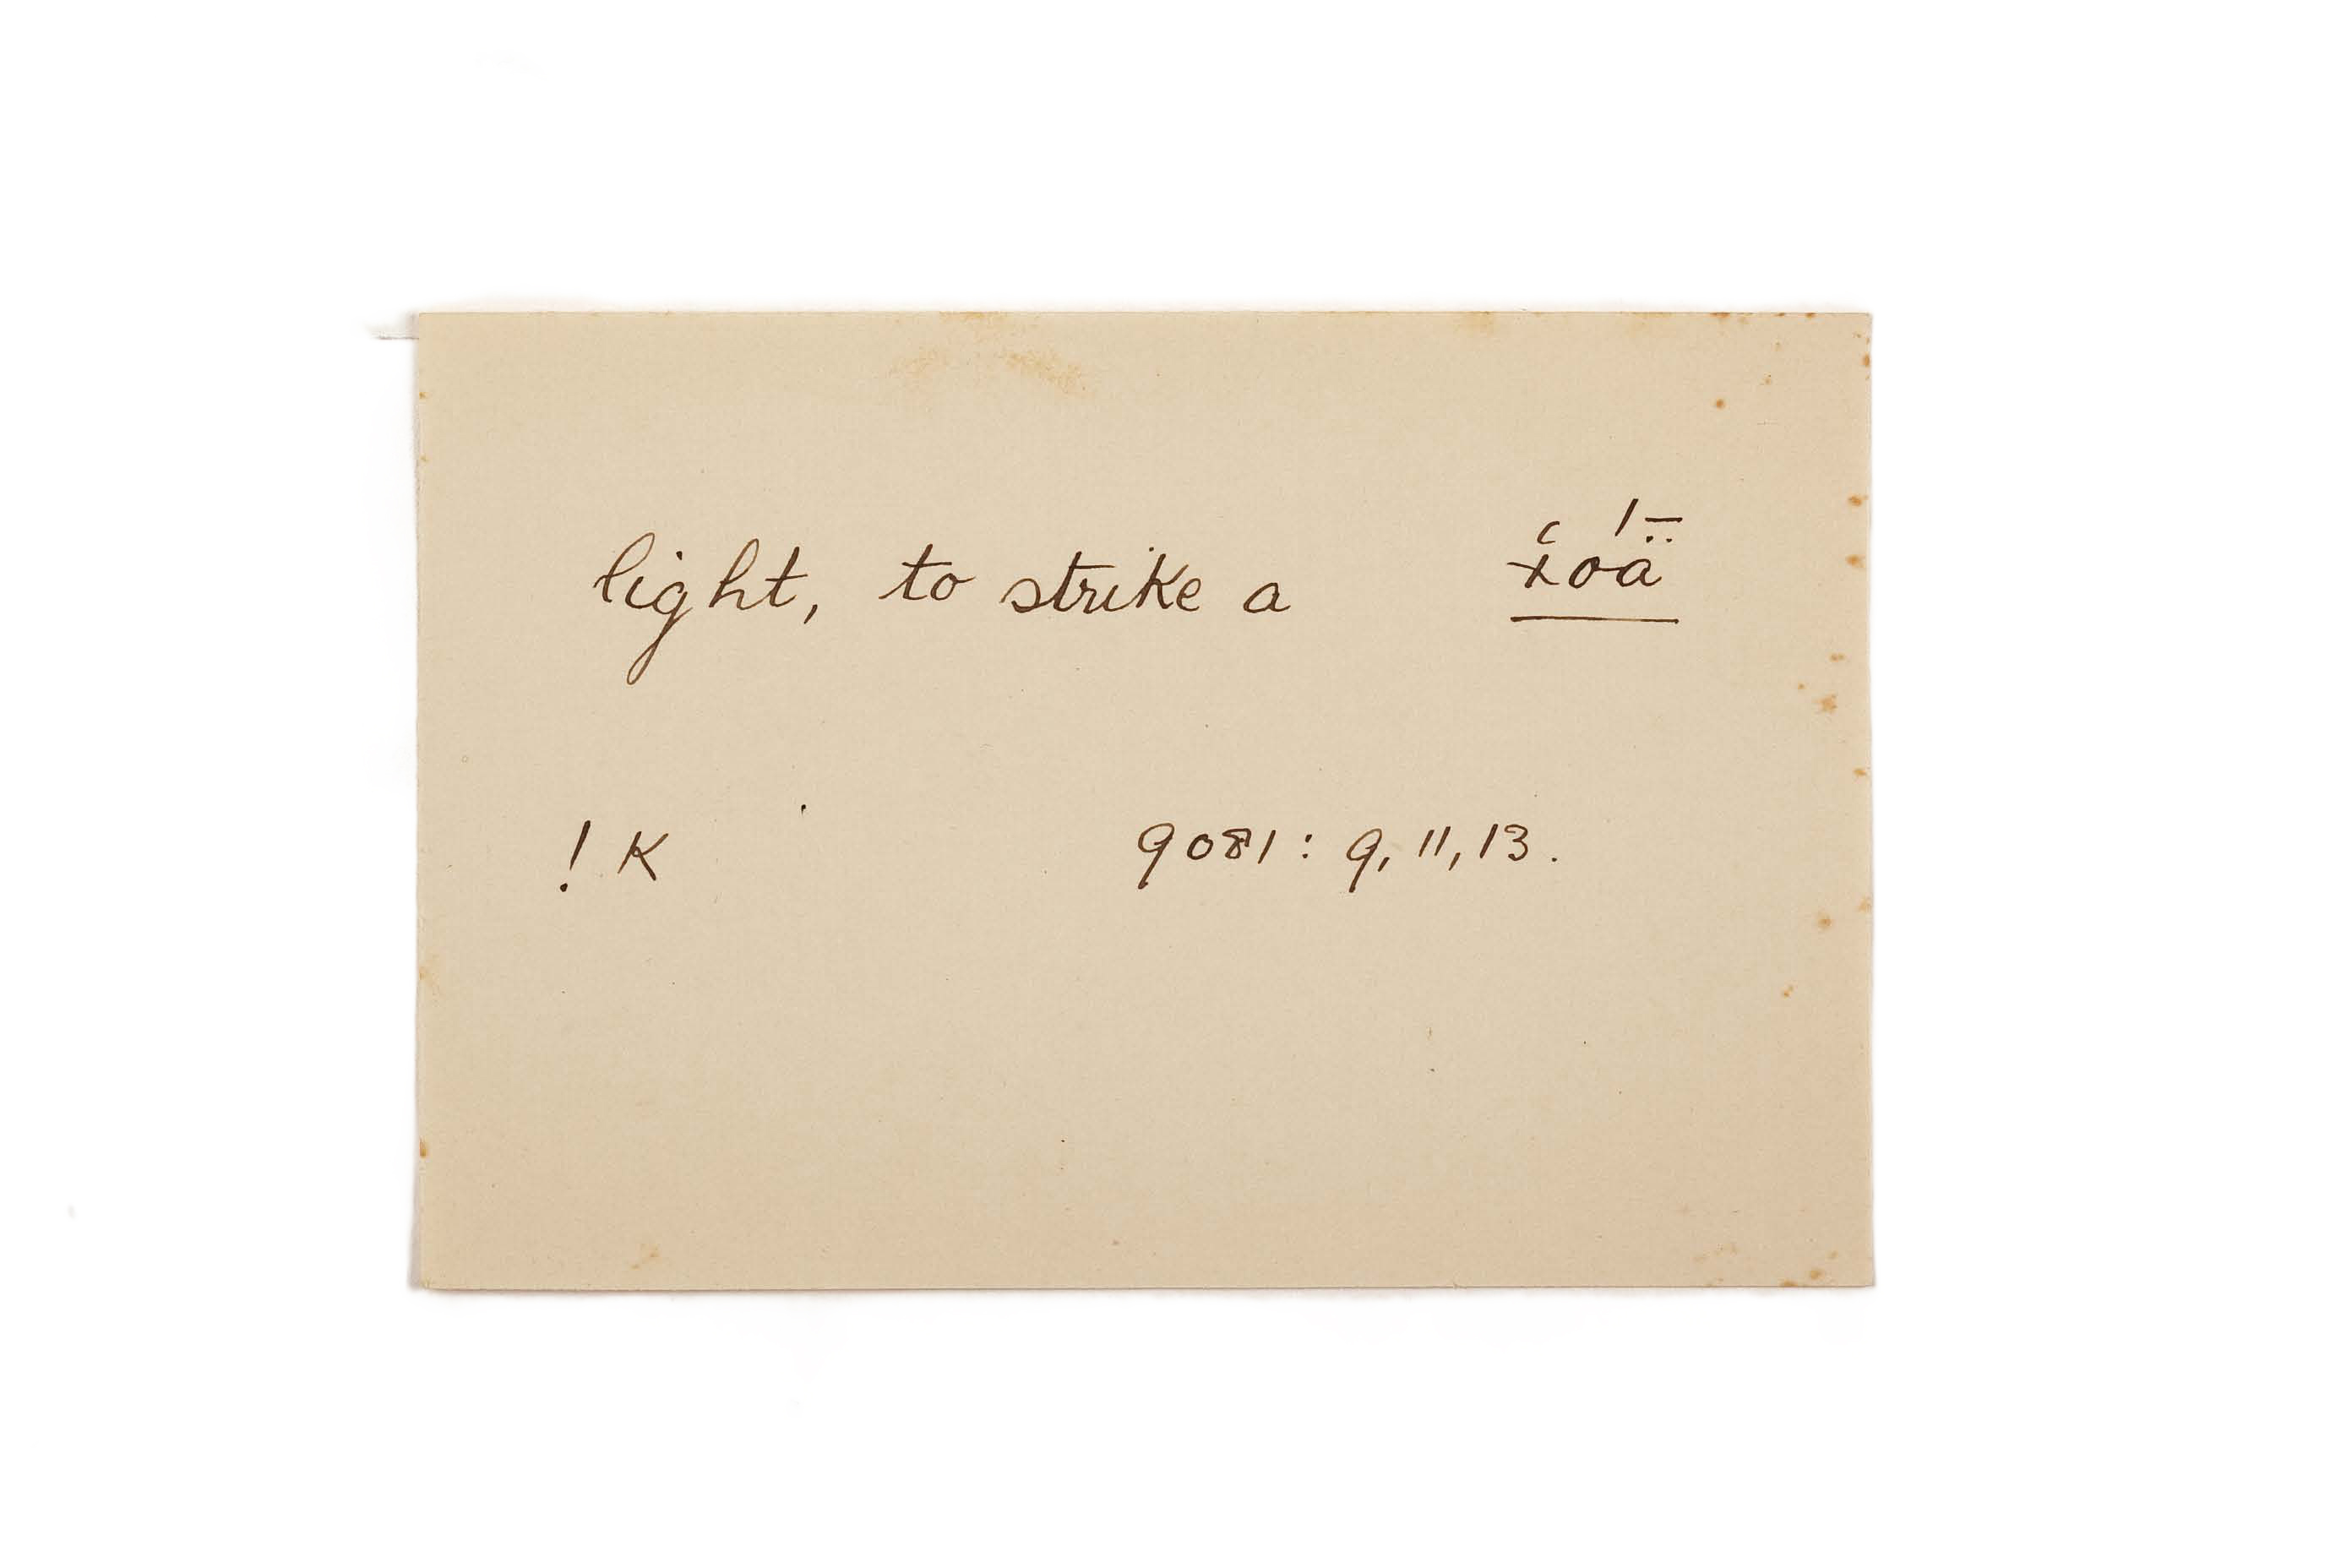 light, to strike a x̵̔óǟ
! K 9081 : 9, 11, 13.